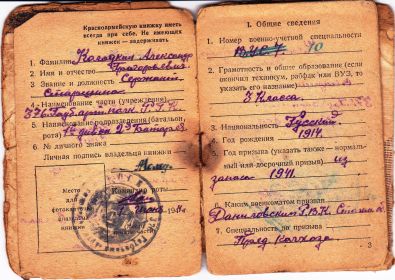 Красноармейскую книжку иметь
всегда при себе. Не имеющих
книжек — задерживать
1. Фамилия Колодкин Александр
2. Имя и отчество Григорьевич
3. Звание и должность Сержант
Старшина
4. Наименование части (учреждения)
376 Гауб. арт. полк Р.Г.К.
5. Наименование подразделения (батальон,
рота) 1й див-н 2я батарея
6. № личного знака
Личная подпись владельца книжки
Место
для
фотокарточки
владельца
книжки
Командир роты
194 г.
I. Общие сведения
1. Номер военно-учетной специальности
10
2. Грамотность и общее образование (если
окончил техникум, рабфак или ВУЗ, то
указать его название)
3 класса
3. Национальность Русский
4. Год рождения 1914
5. Год призыва (указать также — нормаль-
ный или досрочный призыв) из
запаса 1941
6. Каким военкоматом призван
Даниловским Р.В.К.
7. Специальность до призыва
Пред колхоза
3